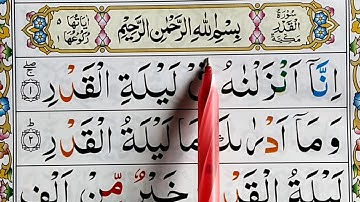 سُوْرَةُ الْقَدْرِ مَكِّيَّةٌ
بِسْمِ اللهِ الرَّحْمٰنِ الرَّحِيْمِ
اٰيَاتُهَا ٥ رُكُوْعُهَا ١
اِنَّاۤ اَنْزَلْنٰهُ فِيْ لَيْلَةِ الْقَدْرِ ۝١
وَمَاۤ اَدْرٰىكَ مَا لَيْلَةُ الْقَدْرِ ۝٢ ط
لَيْلَةُ الْقَدْرِ خَيْرٌ مِّنْ اَلْفِ